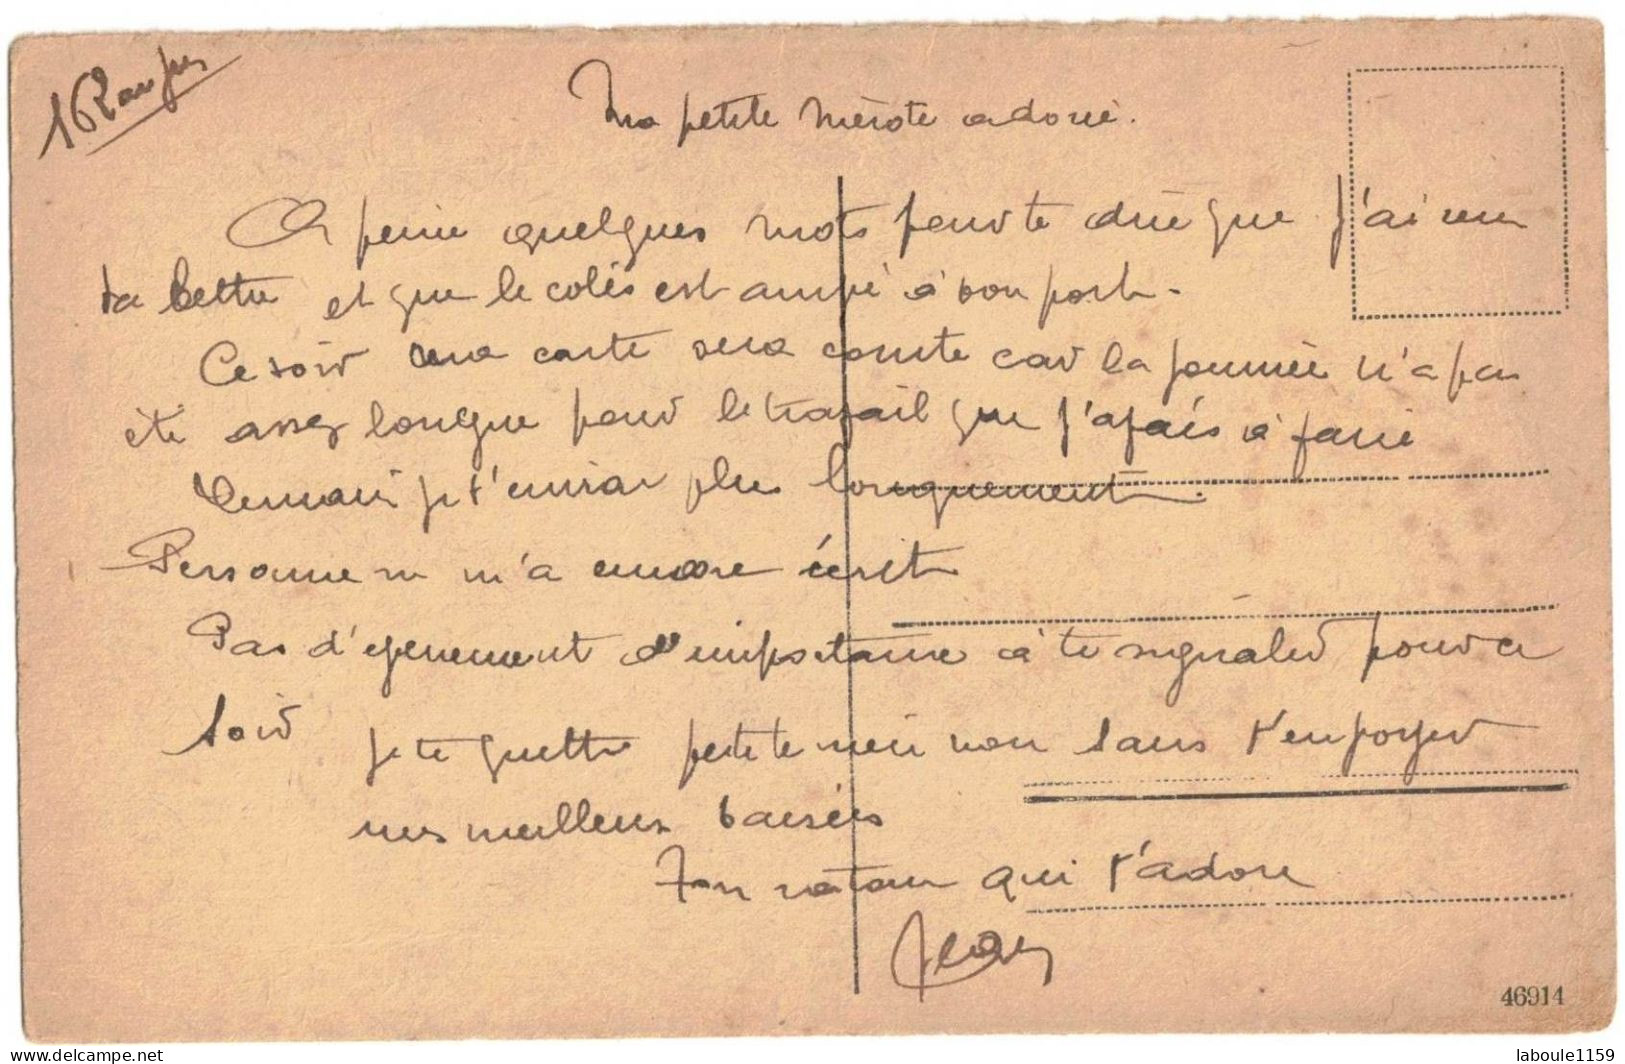 Ma petite Mérote adorée.
A peine quelques mots pour te dire que j'ai reçu
ta lettre et que le colis est arrivé à bon port.
Ce soir ma carte sera courte car la journée n'a pas
été assez longue pour le travail que j'avais à faire
Demain je t'écrirai plus longuement.
Personne ne m'a encore écrit
Pas d'évènement d'importance à te signaler pour ce
soir je te quitte petite mère non sans t'envoyer
mes meilleurs baisers
Ton qui t'adore
Jean
46914
laboule1159